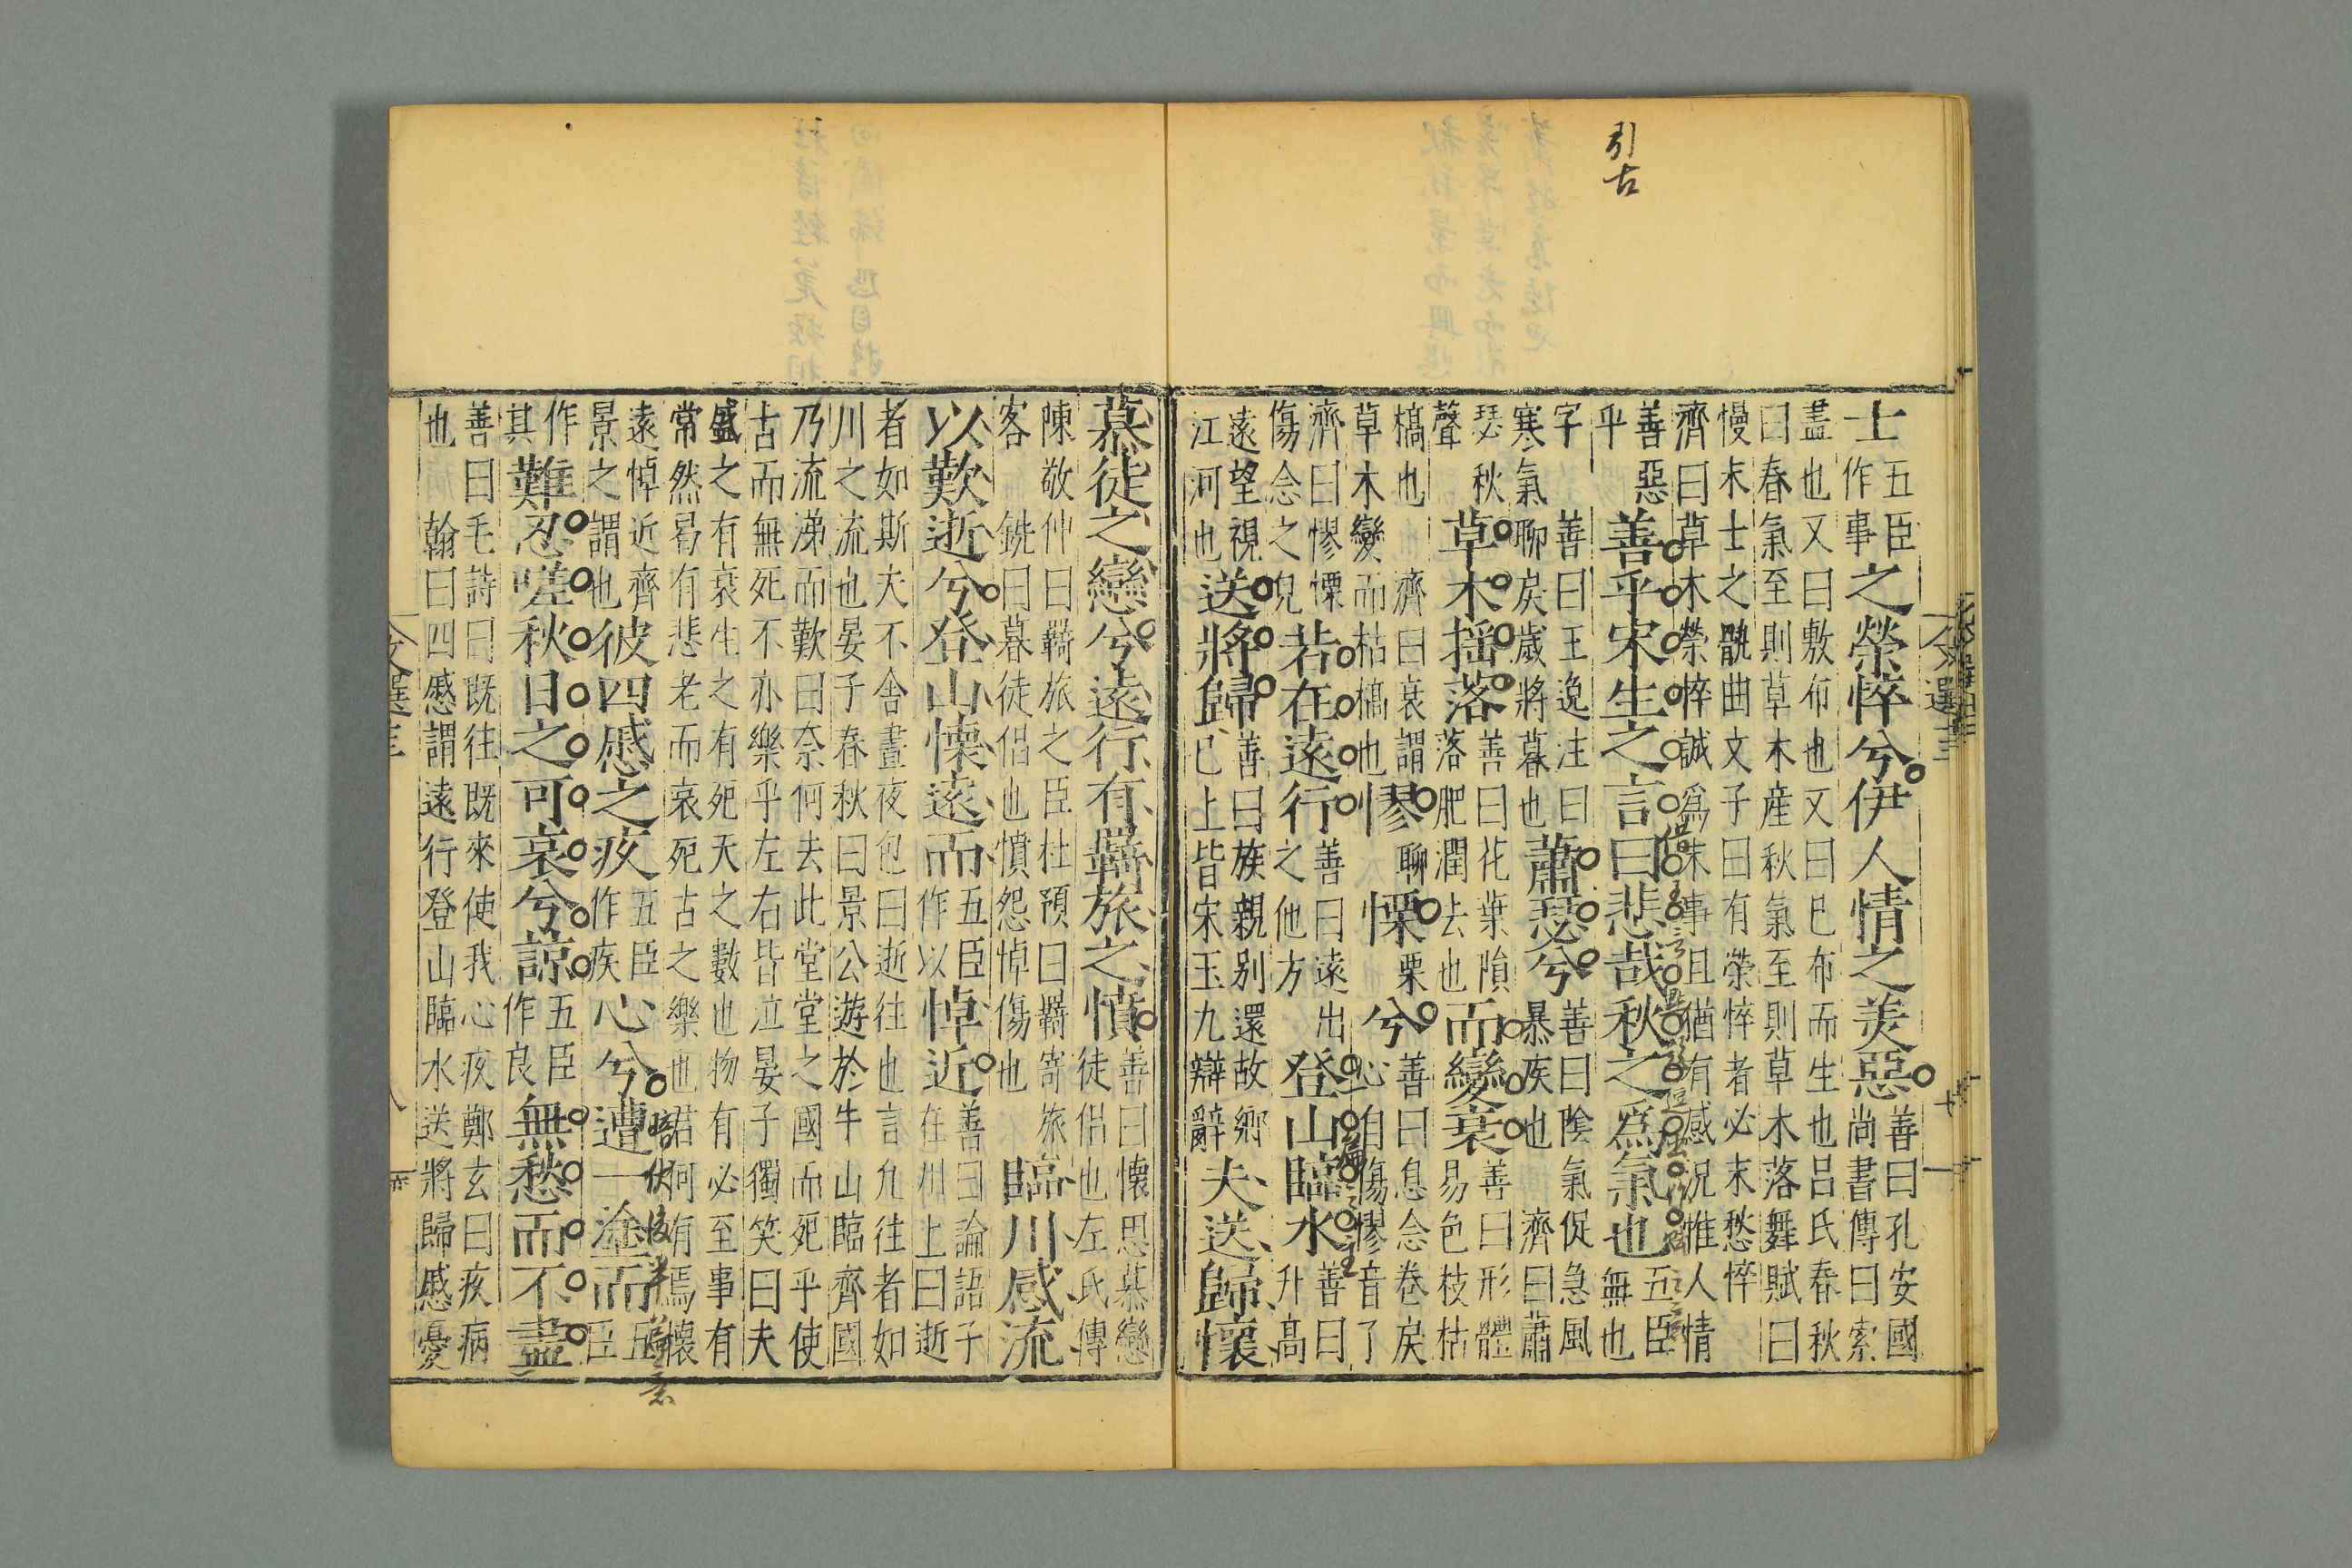 引古
士五臣作事之榮悴兮伊人情之美惡善曰孔安國尚書傳曰索
盡也又曰敷布也又曰巳布而生也呂氏春秋
曰春氣至則草木産秋氣至則草木落舞賦曰
慢末士之骩曲文子曰有榮悴者必末愁悴
齊曰草木榮悴誠爲末事且猶有感況惟人情
善惡乎善乎宋生之言曰悲哉秋之爲氣也五臣無也
字善曰王逸注曰寒氣聊戾歲將暮也蕭瑟兮善曰陰氣促急風暴疾也濟曰蕭
瑟秋聲草木揺落善曰花葉隕落肥潤去也而變衰善曰形體易色枝枯
槁也濟曰衰謂草木變而枯槁也憀聊慄栗兮善曰息念卷戾心自傷憀音了
齊曰憀慄傷念之皃若在遠行善曰遠出之他方登山臨水善曰升高
遠望視江河也送將歸善曰族親别還故鄉已上皆宋玉九辯辭夫送歸懷
慕徒之戀兮遠行有羈旅之憤善曰懷思慕戀徒侶也左氏傳
陳敬仲曰羇旅之臣杜預曰羇寄旅客銑曰暮徒侶也憤怨悼傷也臨川感流
以歎逝兮登山懷遠而五臣作以悼近善曰論語子在川上曰逝
者如斯夫不舍晝夜包曰逝往也言凡往者如
川之流也晏子春秋曰景公遊於牛山臨齊國
乃流涕而歎曰奈何去此堂堂之國而死乎使
古而無死不亦樂乎左右皆泣晏子獨笑曰夫
盛之有衰生之有死天之數也物有必至事有
常然曷有悲老而哀死古之樂也君何有焉懷
遠悼近齊景之謂也彼四慼之疚五臣作疾心兮遭一塗而五臣
作其難忍嗟秋日之可哀兮諒五臣作良無愁而不盡
善曰毛詩曰既往既來使我心疚鄭玄曰疚病
也翰曰四慼謂遠行登山臨水送將歸慼憂